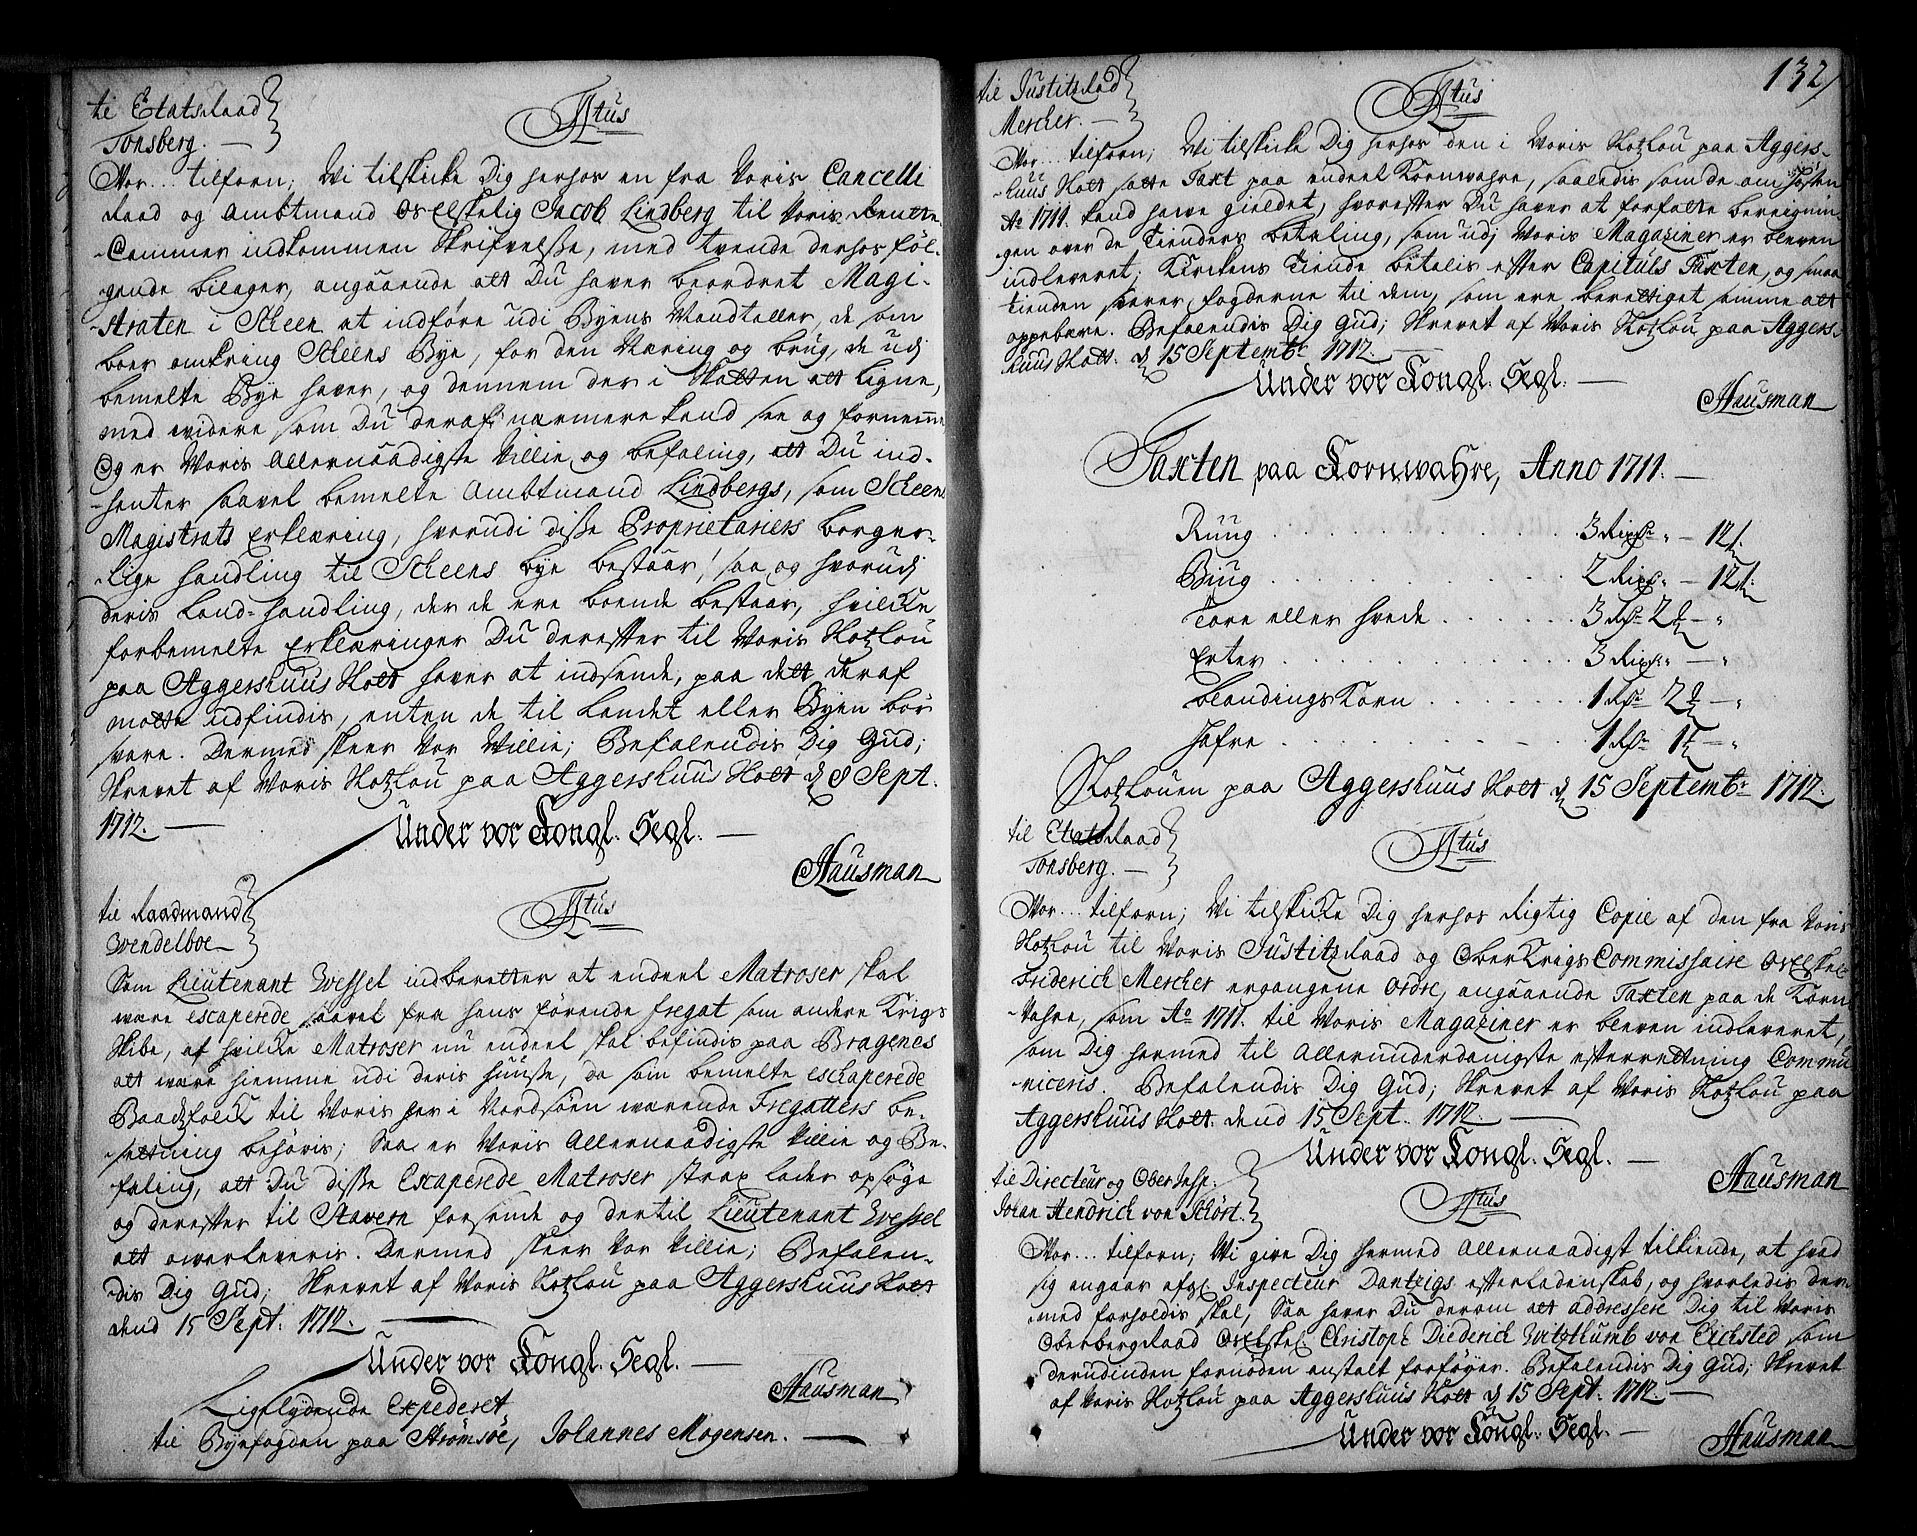 til Etatsraad
Tonsberg.
Ftus
Vor... tilforn; Vi tilskicke Dig herhos en fra Voris Cancelli
Raad og Ambtmand Os Elskelig Jacob Lindberg til Voris Rente-
-Cammer indkommen Skrifvelsse, med tvende derhos föl-
gende bilager, angaaende att Du haver beordret Magi-
-straten i Scheen at indföre udi Byens Mandtaller, de som
boer omkring Scheens Bye, for den Næring og brug, de udj
bemelte Bye haver, og dennem der i Skatten att ligne,
med widere som Du deraf nærmere kand see og fornemme
Og er Voris Allernaadigste Villie og befaling, att Du ind-
-henter saavel bemelte Ambtmand Lindbergs, som Scheens
Magistrats Erklæring, hvorudi disse Proprietariers borger-
-lige handling til Scheens bye bestaar, saa og hvorudj
deris Land-handling, der de ere boende bestaar, hvilcke
forbemelte Erklæringer Du derefter til Voris Slotzlou
paa Aggershuus Slott haver at indsende, paa dett deraf
motte udfindis, enten de til Landet eller Byen bör
svare. Dermed skeer Vor Villie; Befalendis Dig Gud;
Skrevet af Voris Slotzlou paa Aggershuus Slott d 8 Sept.
1712.
Under vor Kongl. Segl.
Hausman
til Raadmand
Wendelboe
Ftus
Som Lieutenant Wessel indberetter at endeel Matroser skal
wære escaperede saavel fra hans förende fregat som andre Krigs
Skibe, af hvilcke Matroser nu endeel skal befindis paa Bragenes
att wære hiemme udi deris huusse, da som bemelte eschaperede
Baadzfolck til Voris her i Nordsöen wærende Fregatters be-
-settning behövis; Saa er Voris Allernaadigste Villie og Be-
-faling, att Du disse Escaperede Matroser strax lader opsöge
og derefter til Stavern forsende og dertil Lieutenant Wessel
att owerleveris. Dermed skeer Vor Villie; Befalen-
-dis Dig Gud; Skrevet af Voris Slotzlou paa Aggershuus Slott
dend 15 Sept. 1712.
Under vor Kongl. Segl.
Hausman
Ligelydende Expederet
til Byefogden paa Strömsöe, Johannes Mogensen.
132
til Justitzraad
Mercher.
Ftus
Vor... tilforn; Vi tilskicke Dig herhos den i Voris Slotzlou paa Aggers-
-huus Slott satte Taxt paa endeel Kornwahre, saaledis som de om Hösten
Ao 1711. kand have gieldet, hvorefter Du haver at forfatte bereignin-
gen over de Tienders betaling, som udj Voris Magaziner er bleven
indleveret; Kirckens Tiende betalis efter Capituls Taxten, og smaa
tienden svarer fogderne til dem, som ere berettiget samme att
oppebære. Befalendis Dig Gud; Skrevet af Voris Slotzlou paa Aggers-
huus Slott. d 15 Septembr 1712.
Under vor Kongl. Segl.
Hausman
Taxten paa Kornwahre, Anno 1711.
Ruug . . . 3 Rixdr " - 12 s.
Bug . . . 2 Rixdr " - 12 s.
Tore eller hvede . . . 3 Rdr 2 - "
Erter . . . 3 Rixdr - "
blandings Korn . . . 1 Rdr 2 - "
Hafre . . . 1 Rdr 1 - "
Slotzlouen paa Aggershuus Slott d 15 Septembr 1712.
til Etatsraad
Tonsberg.
Ftus
Vor... tilforn; Vi tilskicke Dig herhos Rigtig Copie af den fra Voris
Slotzlou til Voris Justitzraad og OberKrigsCommissaire Os Elskel
Friderich Mercher ergangene Ordre, angaaende Taxten paa de Korn
Vahre, som Ao 1711. til Voris Magaziner er bleven indleveret,
som Dig hermed til Allerunderdanigste efterrettning Commu
niceris. Befalendis Dig Gud; Skrevet af Voris Slotzlou paa
Aggershuus Slott. dend 15 Sept. 1712.
Under vor Kongl. Segl.
Hausman
til Directeur og Ober Insp:
Johan Hendrich von Schört.
Ftus
Vor... tilforn; Vi give Dig hermed Allernaadigst tilkiende, at hvad
sig angaar afg. Inspecteur Dantzigs efterladenskab, og hvorledis der
med forholdis skal, Saa haver Du derom att addressere Dig til Voris
Oberbergraad Os Elskel Christoph Diederich Witzthumb von Eichsted som
derudinden fornöden anstalt forföyer. Befalendis Dig Gud; Skrevet
af Voris Slotzlou paa Aggershuus Slott d 15 Sept. 1712.
Under vor Kongl. Segl.
Hausman